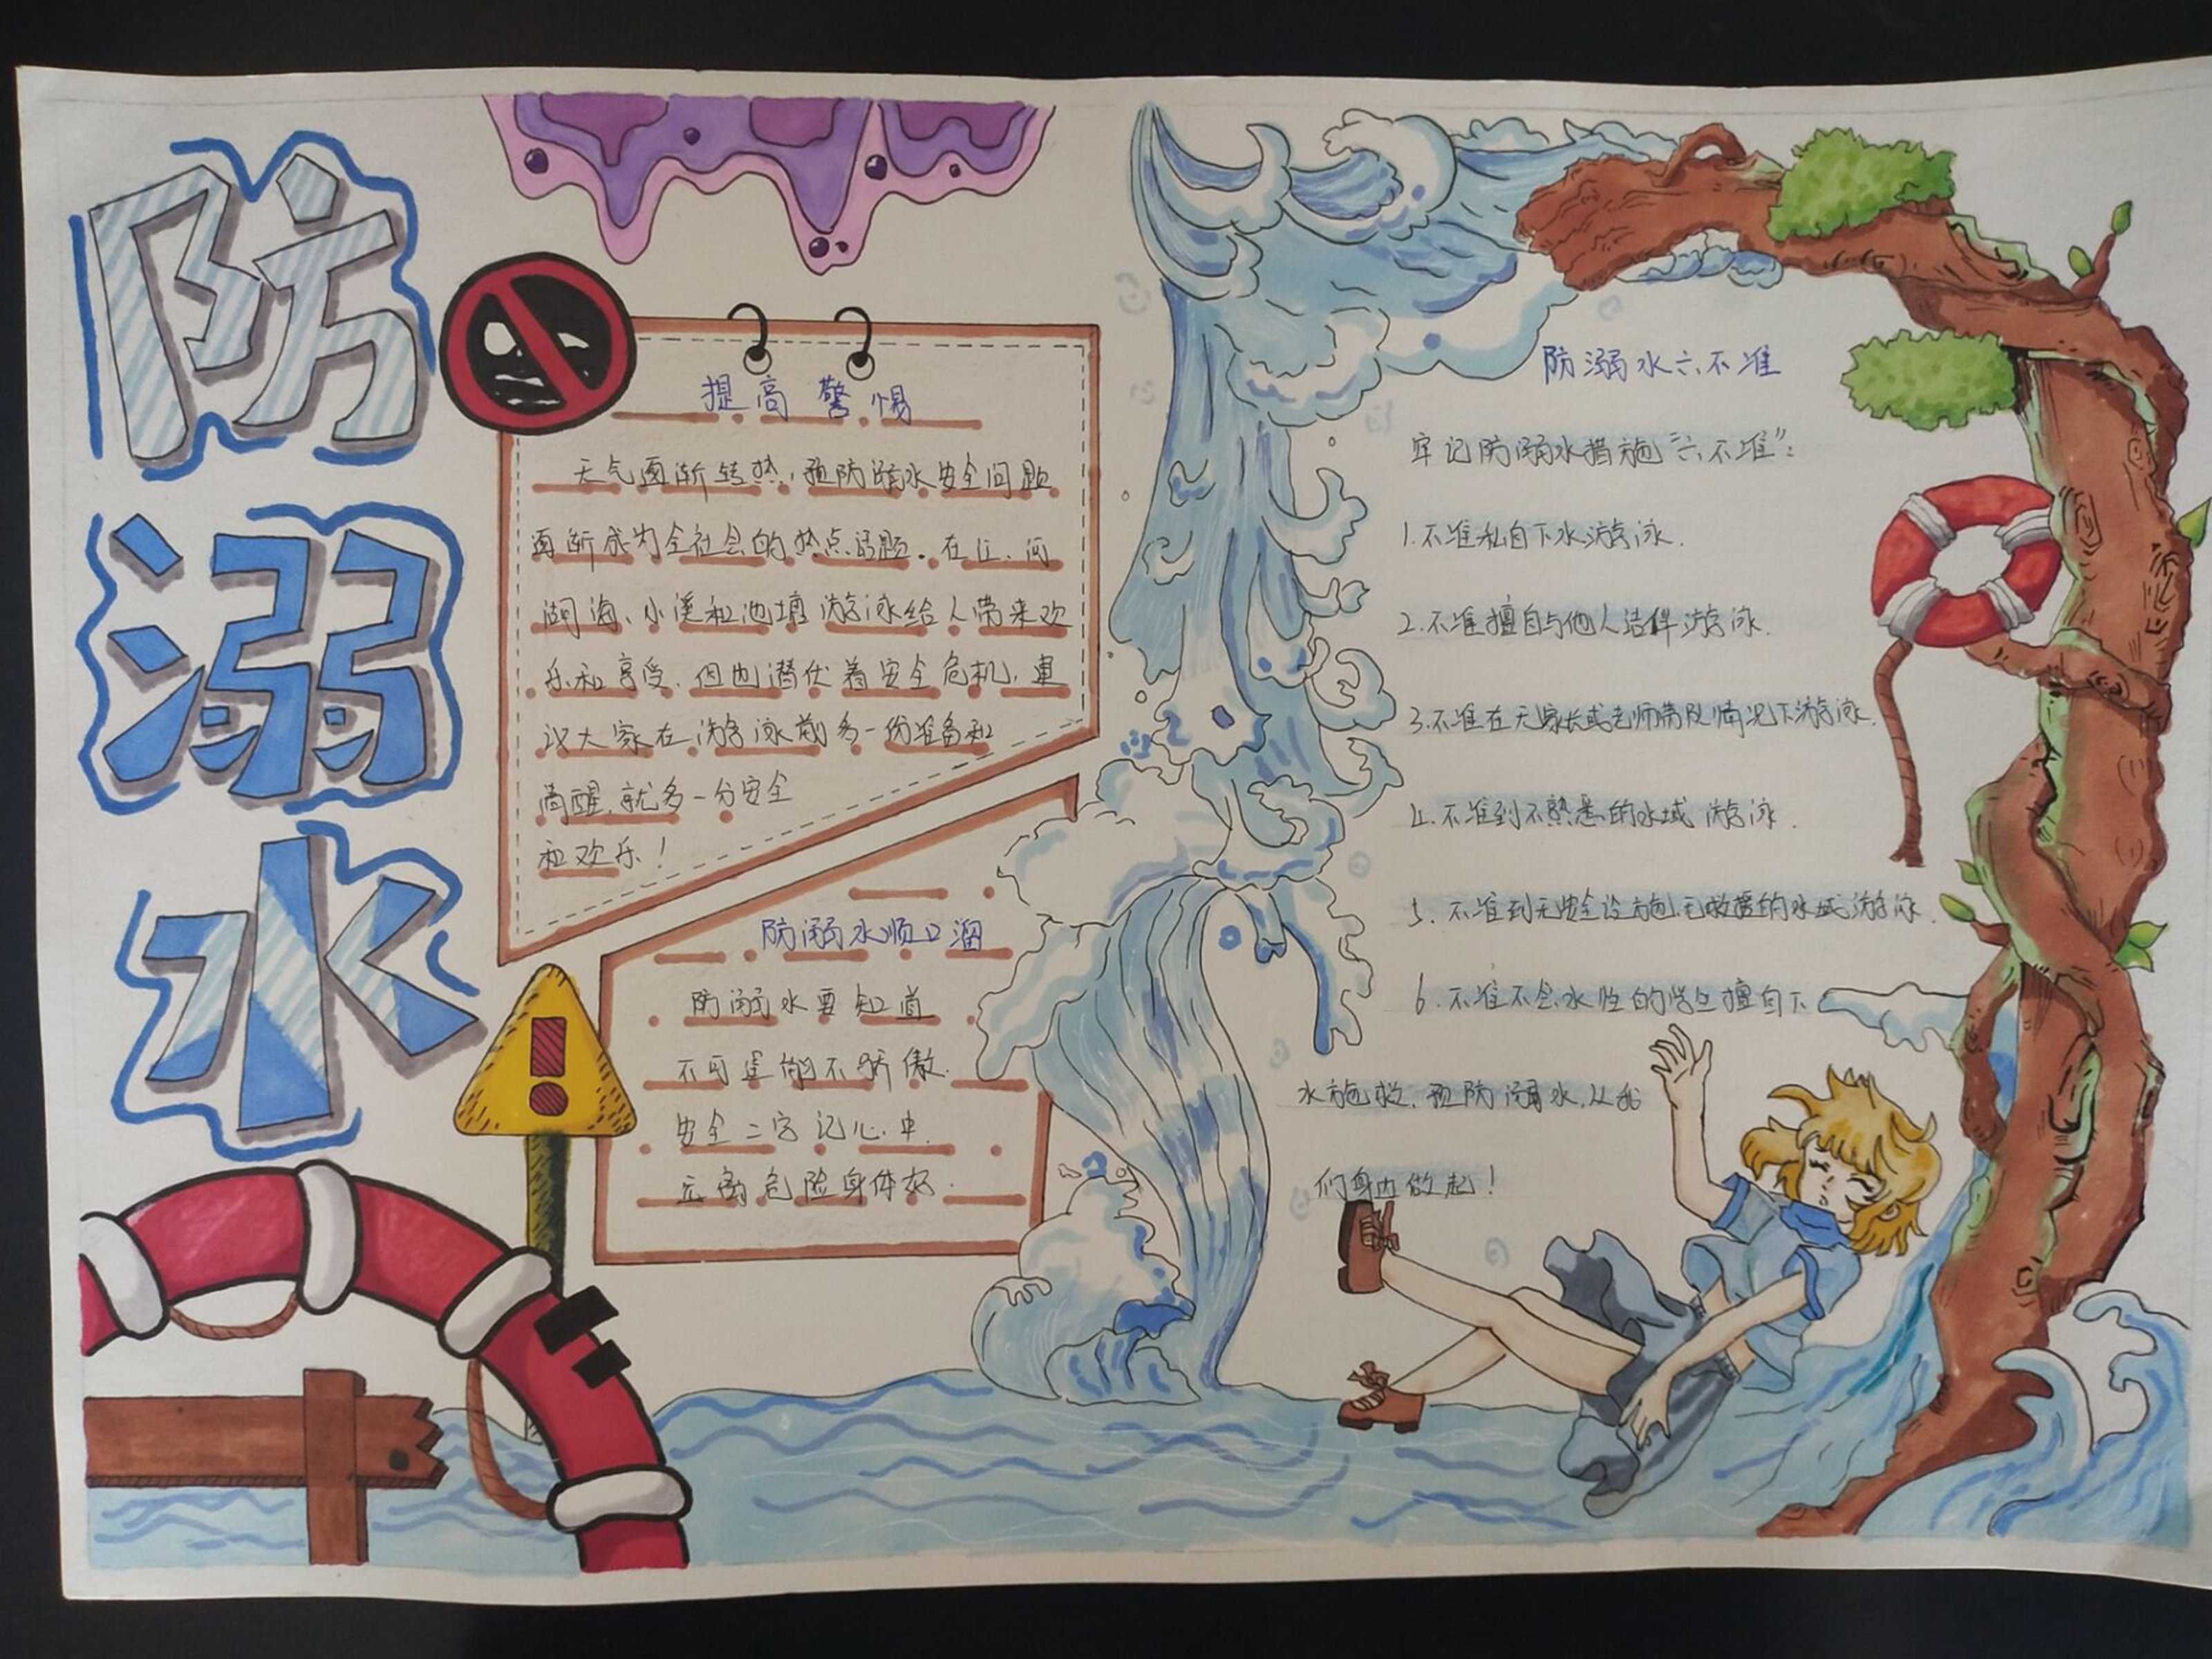 防溺水
提高警惕
天气逐渐转热，预防溺水安全问题
逐渐成为全社会的热点话题。在江、河
湖海、小溪和池塘游泳给人带来欢
乐和享受，但也潜伏着安全危机，建
议大家在游泳前多一份准备和
清醒，就多一分安全
和欢乐！
防溺水顺口溜
防溺水要知道
不可逞能不骄傲
安全二字记心中
远离危险身体好
防溺水六不准
牢记防溺水措施“六不准”：
1.不准私自下水游泳.
2.不准擅自与他人结伴游泳.
3.不准在无家长或老师带队情况下游泳.
4.不准到不熟悉的水域游泳.
5.不准到无安全设施、无救援的水域游泳.
6.不准不会水性的学生擅自下
水施救，预防溺水，从我
们身边做起！